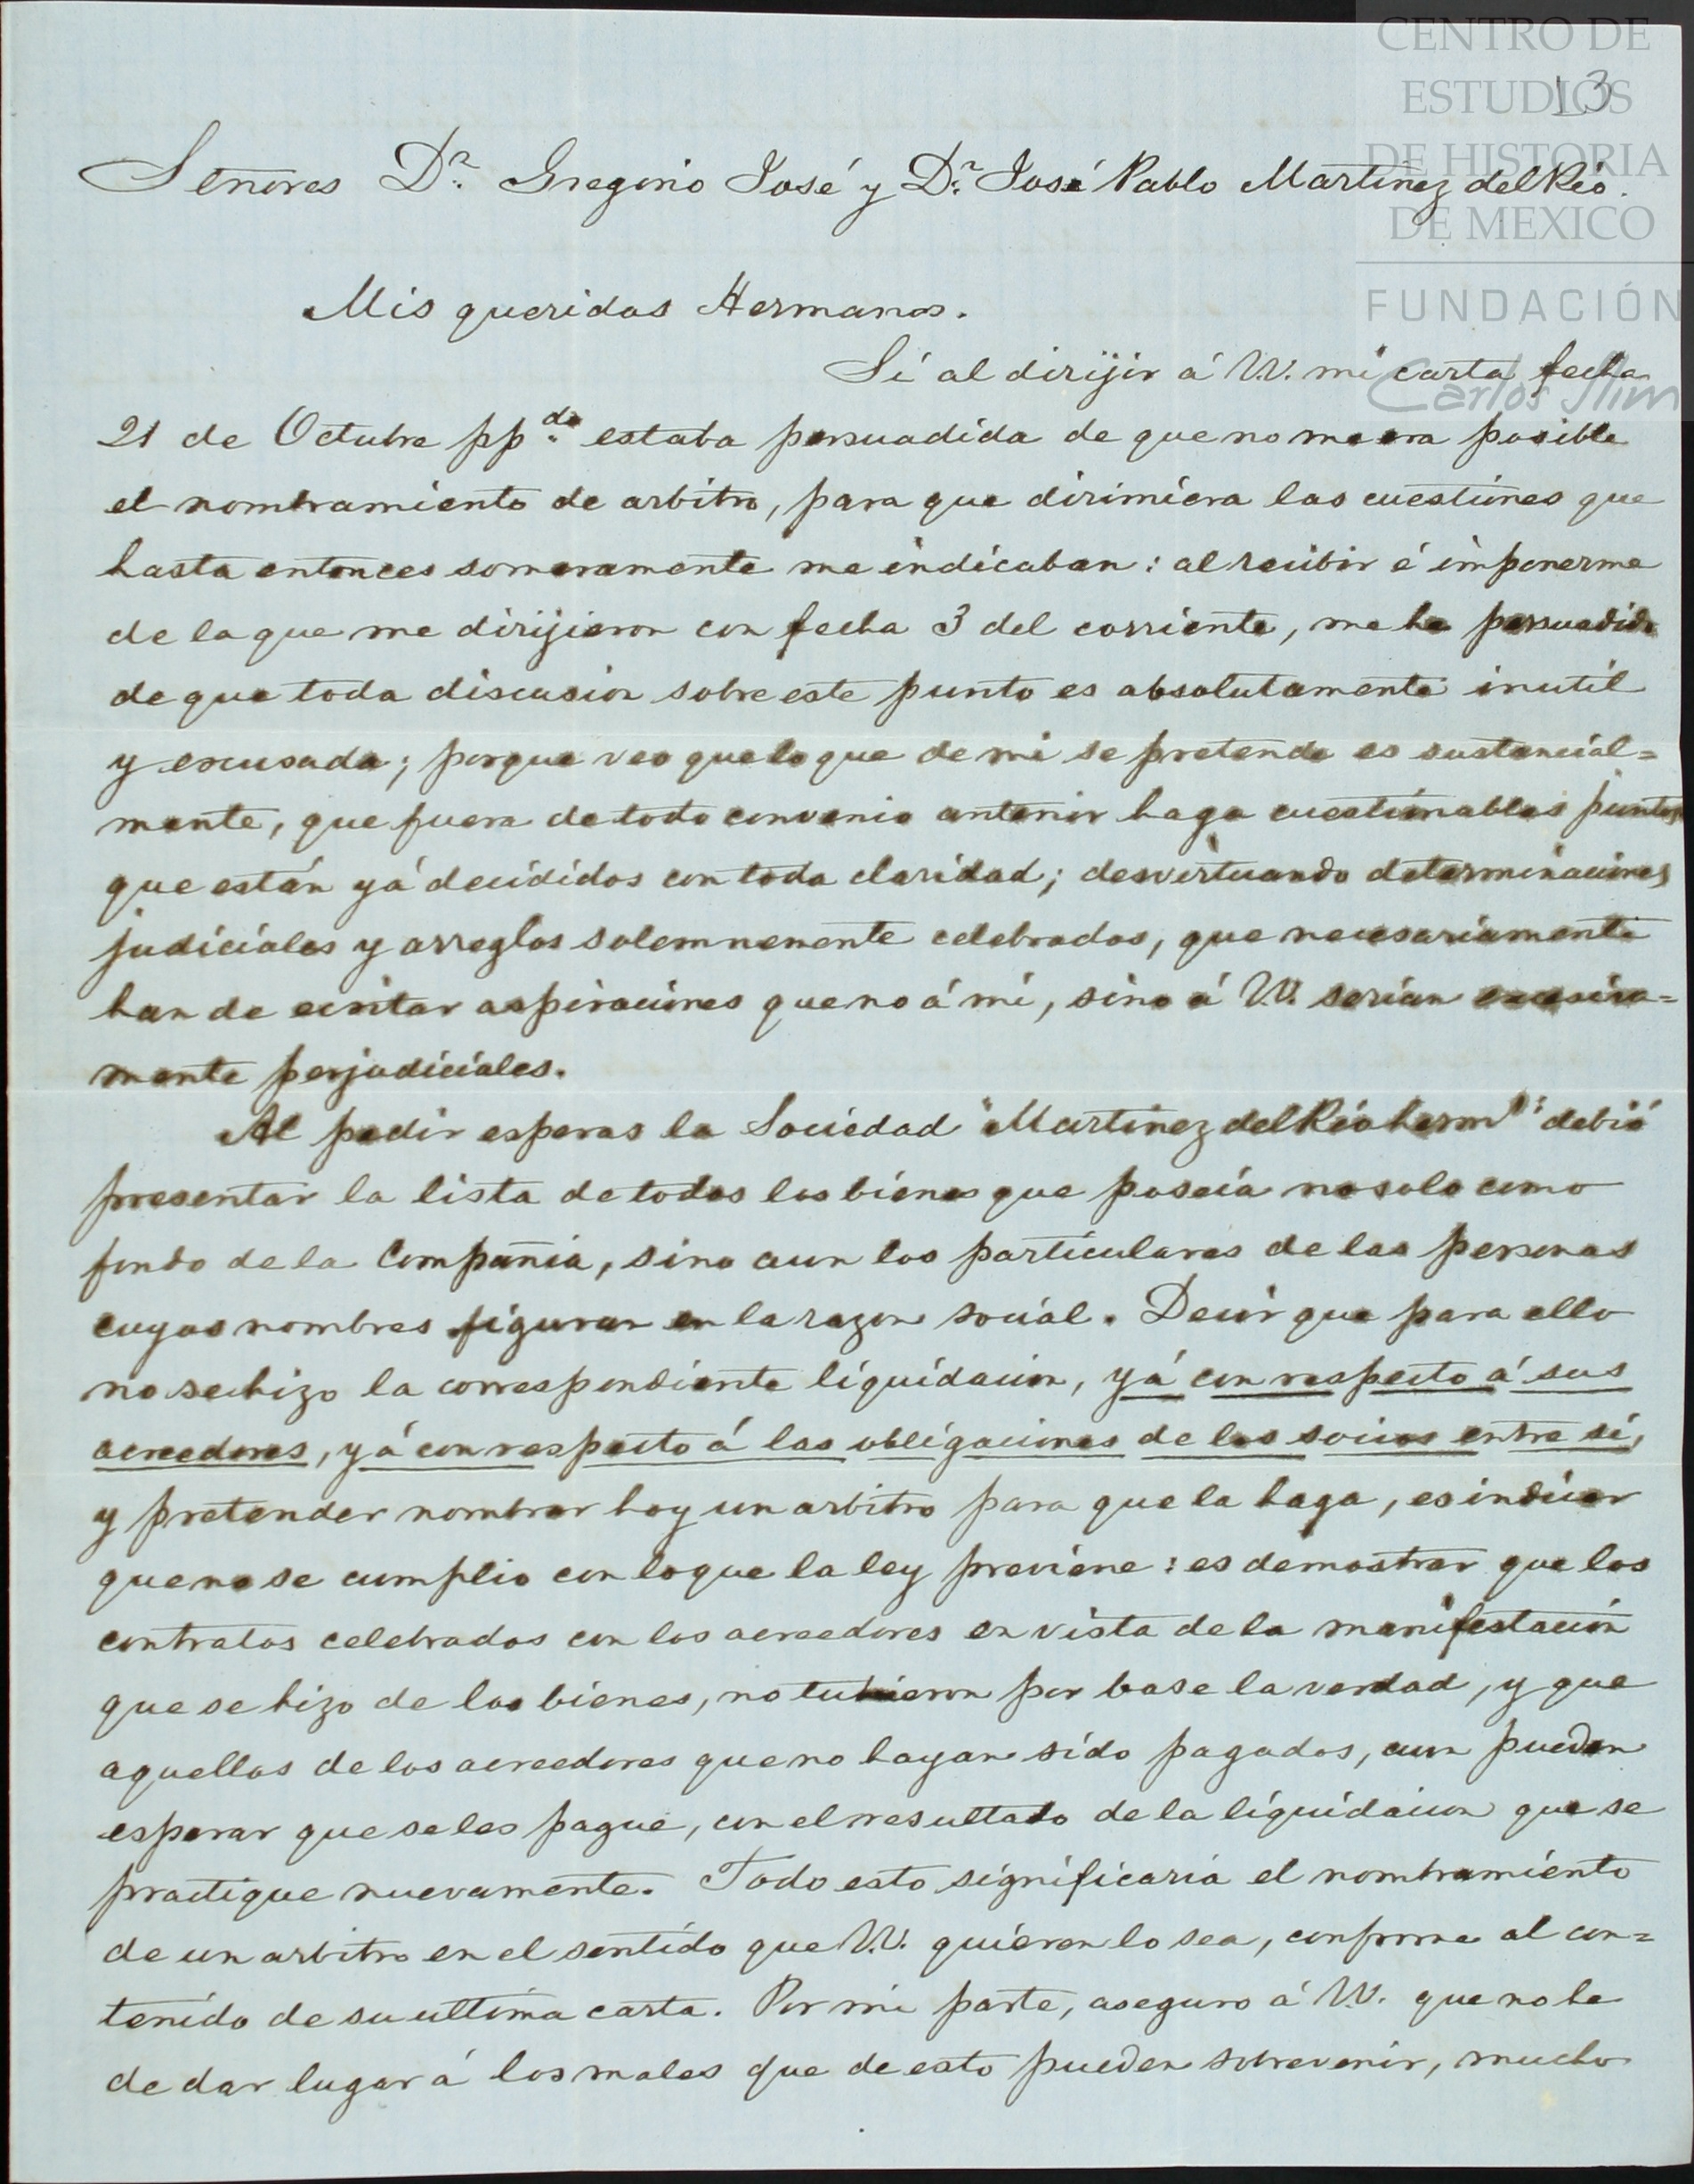 CENTRO DE
ESTUDIOS
DE HISTORIA
DE MEXICO
FUNDACIÓN
Carlos Slim
13
Señores Dn. Gregorio José y Dn. José Pablo Martinez del Rio.
Mis queridos Hermanos.
Si al dirijir á V.V. mi carta fecha
21 de Octubre pp.do estaba persuadida de que no me era posible
el nombramiento de arbitro, para que dirimiera las cuestiones que
hasta entonces someramente me indicaban: al recibir é imponerme
de la que me dirijieron con fecha 3 del corriente, me he persuadido
de que toda discusion sobre este punto es absolutamente inutil
y escusada; porque veo que lo que de mi se pretende es sustancial=
mente, que fuera de todo convenio anterior haga cuestionables puntos
que están yá decididos con toda claridad; desvirtuando determinaciones
judiciales y arreglos solemnemente celebrados, que necesariamente
han de ecsitar aspiraciones que no á mi, sino á V.V. serian excesiva=
mente perjudiciales.
Al pedir esperas la Sociedad "Martinez del Rio hermos" debió
presentar la lista de todos los bienes que poseía no solo como
fondo de la Compañia, sino aun los particulares de las personas
cuyos nombres figuran en la razon social. Decir que para ello
no se hizo la correspondiente liquidacion, yá con respecto á sus
acreedores, yá con respecto á las obligaciones de los socios entre sí,
y pretender nombrar hoy un arbitro para que la haga, es indicar
que no se cumplio con lo que la ley previene: es demostrar que los
contratos celebrados con los acreedores en vista de la manifestacion
que se hizo de los bienes, no tubieron por base la verdad, y que
aquellos de los acreedores que no hayan sido pagados, aun pueden
esperar que se les pague, con el resultado de la liquidacion que se
practique nuevamente. Todo esto significaria el nombramiento
de un arbitro en el sentido que V.V. quieren lo sea, conforme al con=
tenido de su ultima carta. Por mi parte, aseguro á V.V. que no he
de dar lugar á los males que de esto pueden sobrevenir, mucho